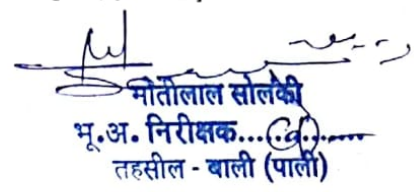 मोतीलाल सोलंकी
भू.अ. निरीक्षक..............
तहसील - बाली (पाली)